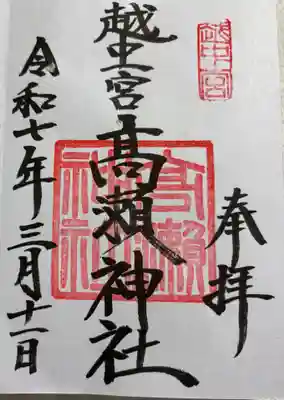 奉拝
越中宮
越中宮髙瀬神社
髙瀬神社
令和七年三月十一日